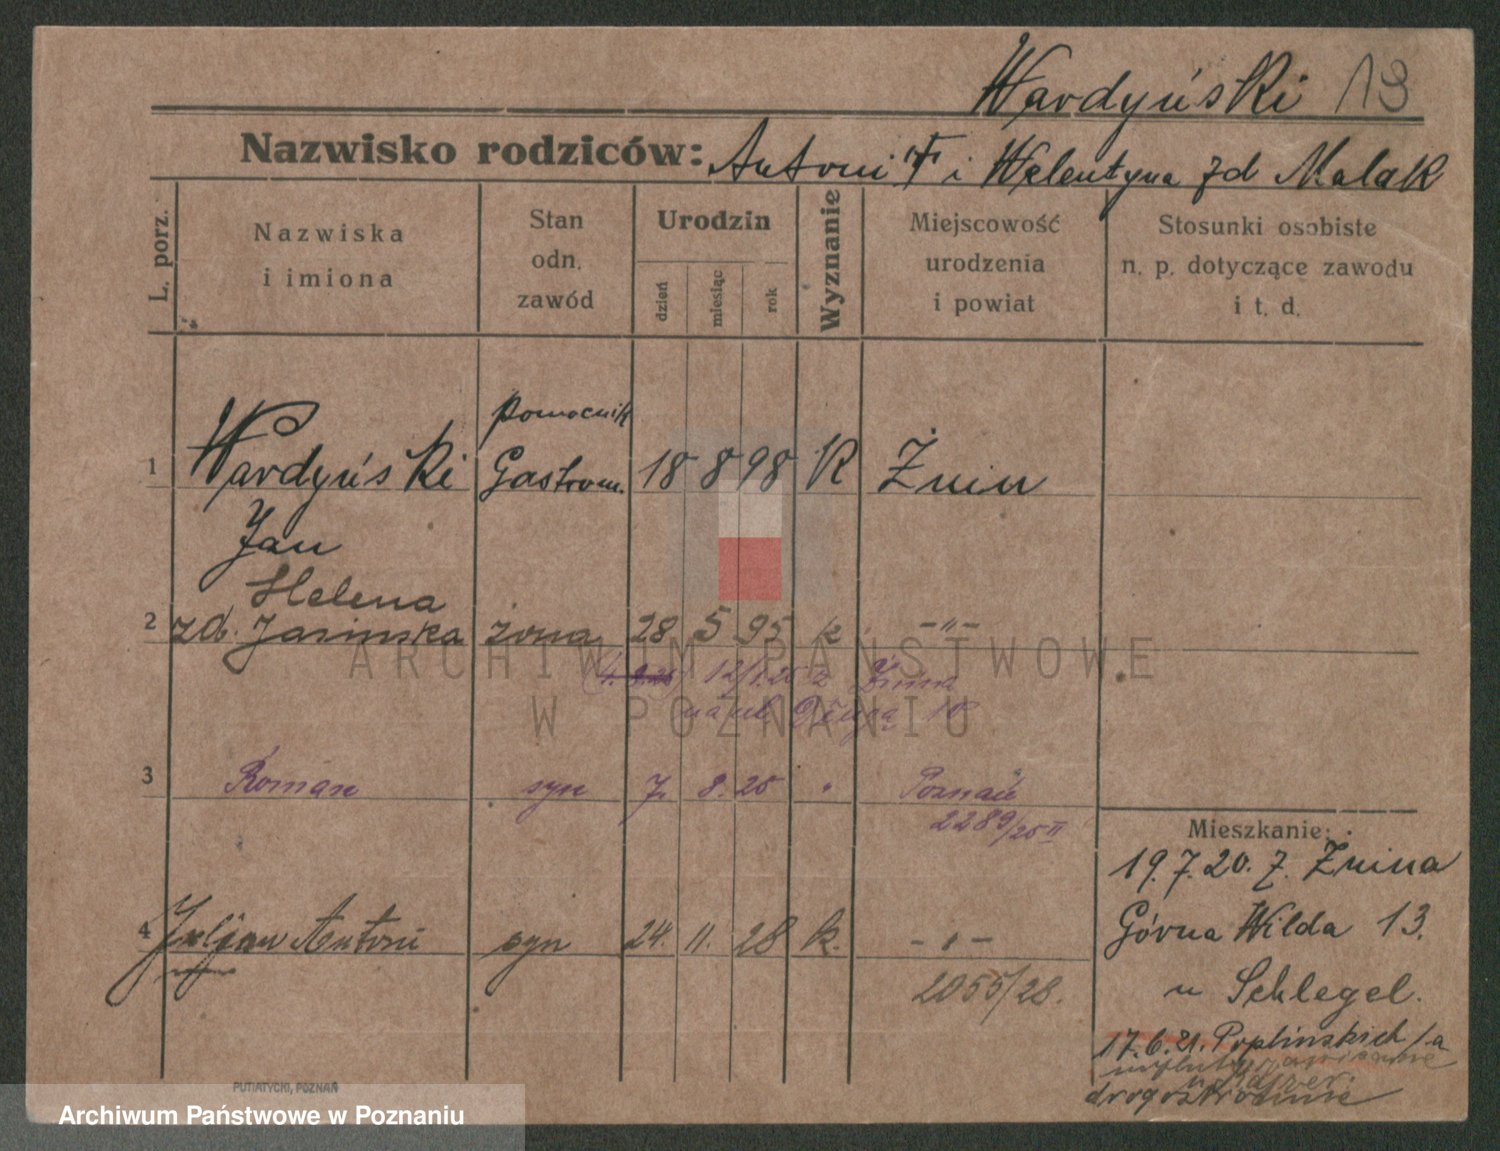 Wardyński 13
Nazwisko rodziców: Antoni † i Walentyna zd Malak
L. porz.
Nazwiska
i imiona
Stan
odn.
zawód
Urodzin
dzień
miesiąc
rok
Wyznanie
Miejscowość
urodzenia
i powiat
Stosunki osobiste
n. p. dotyczące zawodu
i t. d.
pomocnik
1 Wardyński Gastron. 18 8 98 K Żnin
Jan
Helena
2 zd. Jasinska żona 28 5 95 k. -"-
12/1.25 z Żnina
na ul. 18
3 Roman syn 7. 8. 25 " Poznań
2289/25 II
Mieszkanie:
19.7.20. z. Żnina
4 Juljan Antoni syn 24. 11. 28 k. - " -
Górna Wilda 13.
2055/28.
u Schlegel.
17.6.21. Poplinskich 1a
drogo
PUTIATYCKI, POZNAŃ
ARCHIWUM PAŃSTWOWE
W POZNANIU
Archiwum Państwowe w Poznaniu